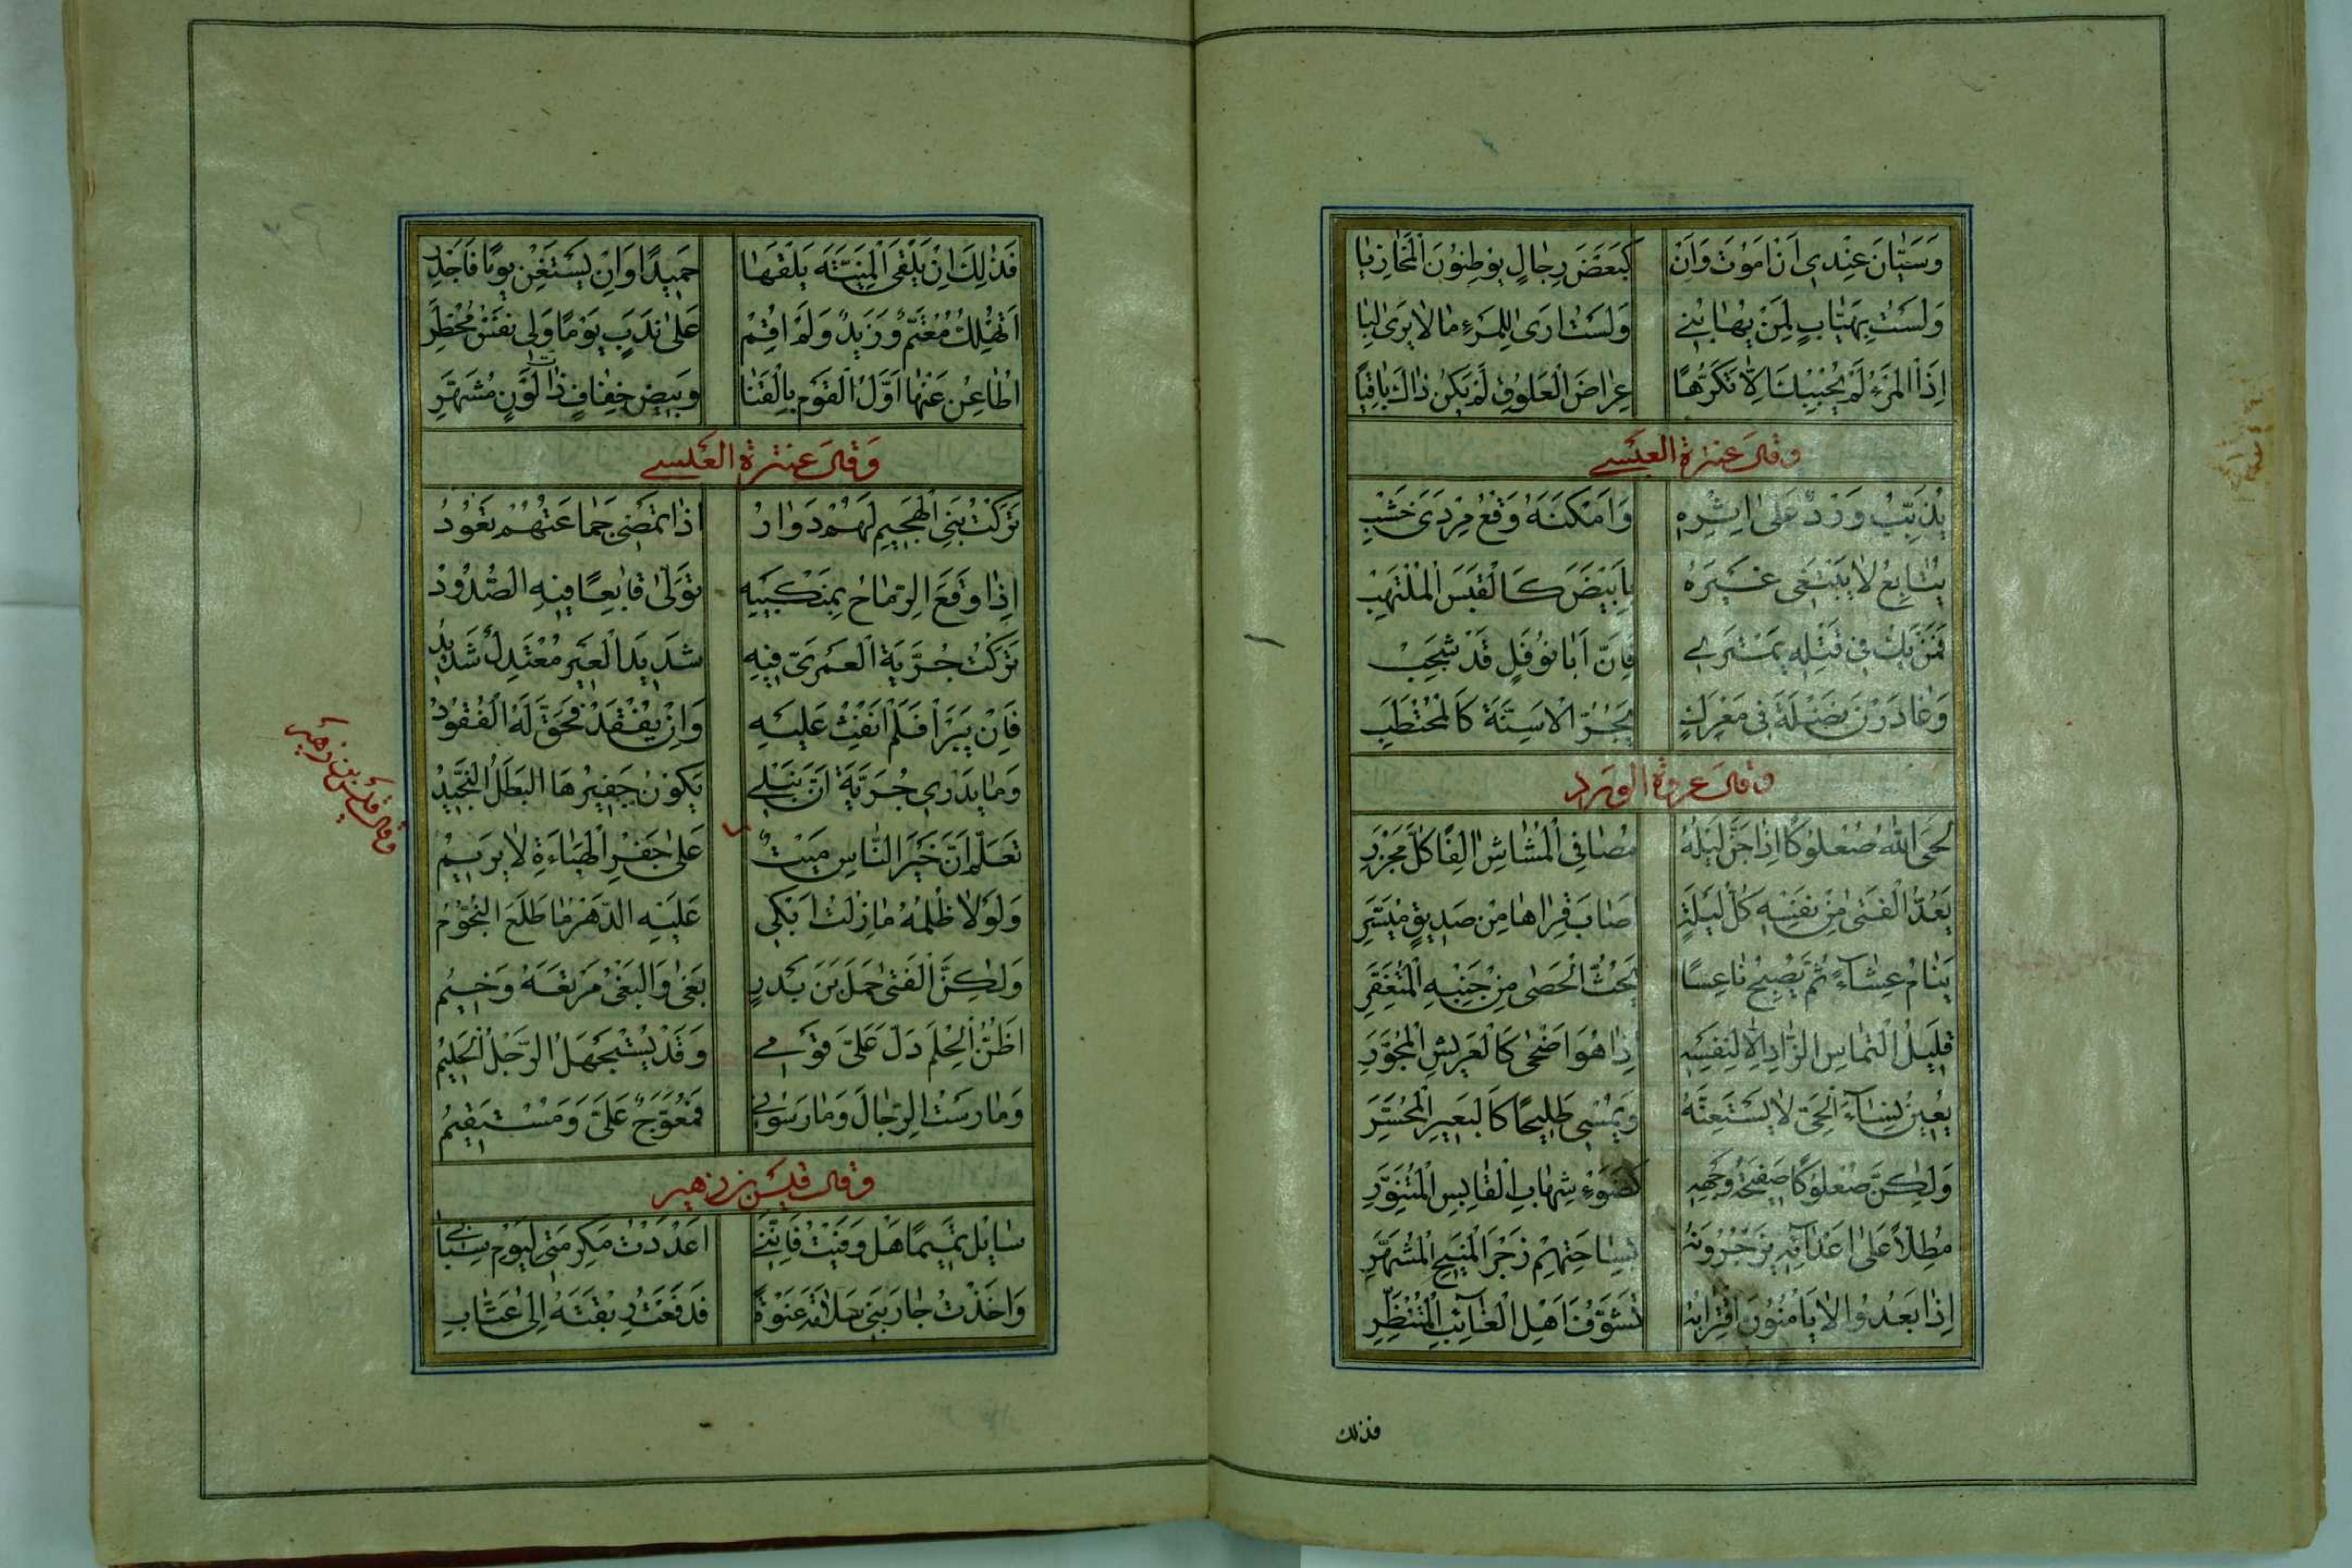 وَسَيّٰانَ عِنْدِي اَنْ اَمُوتَ وَاَنْ اُرىٰ كَبَعْضِ رِجٰالٍ يُوطِنُونَ الْمَخٰازِيٰا
وَلَسْتُ بِهَيّٰابٍ لِمَنْ يَهٰابُنِي وَلَسْتُ اَرىٰ لِلْمَرْءِ مٰا لاٰ يَرىٰ لِيٰا
اِذَا الْمَرْءُ لَمْ يُحْبِبْكَ اِلاّٰ تَكَرُّهًا عِرٰاضَ الْعَلُوقِ لَمْ يَكُنْ ذٰاكَ بٰاقِيًا
وقال عنترة العبسي
يُذَبِّبُ وَرْدٌ عَلىٰ اِثْرِهِ وَاَمْكَنَهُ وَقْعُ مِرْدىً خَشِبِ
يُتٰابِعُ لاٰ يَبْتَغِي غَيْرَهُ بِاَبْيَضَ كَالْقَبَسِ الْمُلْتَهِبْ
فَمَنْ يَكُ فِي قَتْلِهِ يَمْتَرِي فَاِنَّ اَبٰا نَوْفَلٍ قَدْ شَجِبْ
وَغٰادَرْنَ نَضْلَةَ فِي مَعْرَكٍ يَجُرُّ الْاَسِنَّةَ كَالْمُحْتَطِبِ
وقال عروة الورد
لَحَى اللّٰهُ صُعْلُوكًا اِذٰا جَنَّ لَيْلُهُ مُصٰافِي الْمُشٰاشِ اٰلِفًا كُلَّ مَجْزَرِ
يَعُدُّ الْفَتىٰ مِنْ نَفْسِهِ كُلَّ لَيْلَةٍ اَصٰابَ قِرٰاهٰا مِنْ صَدِيقٍ مُيَسَّرِ
يَنٰامُ عِشٰاءً ثُمَّ يُصْبِحُ نٰاعِسًا يَحُثُّ الْحَصىٰ مِنْ جَنْبِهِ الْمُتَعَفِّرِ
قَلِيلُ الْتِمٰاسِ الزّٰادِ اِلاّٰ لِنَفْسِهِ اِذٰا هُوَ اَضْحىٰ كَالْعَرِيشِ الْمُجَوَّرِ
يُعِينُ نِسٰاءَ الْحَيِّ لاٰ يَسْتَعِنَّهُ وَيُمْسِي طَلِيحًا كَالْبَعِيرِ الْمُحَسَّرِ
وَلٰكِنَّ صُعْلُوكًا صَفِيحَةُ وَجْهِهِ كَضَوْءِ شِهٰابِ الْقٰابِسِ الْمُتَنَوِّرِ
مُطِلاًّ عَلىٰ اَعْدٰائِهِ يَزْجُرُونَهُ بِسٰاحَتِهِمْ زَجْرَ الْمَنِيحِ الْمُشَهَّرِ
اِذٰا بَعُدُوا لاٰ يَاْمَنُونَ اقْتِرٰابَهُ تَشَوُّفَ اَهْلِ الْغٰائِبِ الْمُتَنَظِّرِ
فذلك
فَذٰلِكَ اِنْ يَلْقَى الْمَنِيَّةَ يَلْقَهٰا حَمِيدًا وَاِنْ يَسْتَغْنِ يَوْمًا فَاَجْدِرِ
اَتَهْلِكُ مُعْتَمٌّ وَزَيْدٌ وَلَمْ اَقُمْ عَلىٰ نَدَبٍ يَوْمًا وَلِي نَفْسُ مُخْطِرِ
اُطٰاعِنُ عَنْهٰا اَوَّلَ الْقَوْمِ بِالْقَنٰا وَبِيضٍ خِفٰافٍ ذٰاتِ لَوْنٍ مُشَهَّرِ
وَقال عنترة العَبسي
تَرَكْتُ بَنِي الْهُجَيْمِ لَهُمْ دَوٰارٌ اِذٰا تَمْضِي جَمٰاعَتُهُمْ تَعُودُ
اِذٰا وَقَعَ الرِّمٰاحُ بِمَنْكِبَيْهِ تَوَلّىٰ قٰابِعًا فِيهِ الصُّدُودُ
تَرَكْتُ جُرَيَّةَ الْعَمْرِيَّ فِيهِ شَدِيدَ الْعَيْرِ مُعْتَدِلٌ شَدِيدُ
فَاِنْ يَبْرَاْ فَلَمْ اَنْفِثْ عَلَيْهِ وَاِنْ يُفْقَدْ فَحُقَّ لَهُ الْفُقُودُ
وَمٰا يَدْرِي جُرَيَّةُ اَنَّ نَبْلِي يَكُونُ جَفِيرُهَا الْبَطَلُ النَّجِيدُ
وقال قيس بن زهير
تَعَلَّمْ اَنَّ خَيْرَ النّٰاسِ مَيْتٌ عَلىٰ جَفْرِ الْهَبٰاءَةِ لاٰ يَرِيمُ
وَلَوْلاٰ ظُلْمُهُ مٰا زِلْتُ اَبْكِي عَلَيْهِ الدَّهْرَ مٰا طَلَعَ النُّجُومُ
وَلٰكِنَّ الْفَتىٰ حَمَلَ بْنَ بَدْرٍ بَغىٰ وَالْبَغْيُ مَرْتَعُهُ وَخِيمُ
اَظُنُّ الْحِلْمَ دَلَّ عَلَيَّ قَوْمِي وَقَدْ يُسْتَجْهَلُ الرَّجُلُ الْحَلِيمُ
وَمٰارَسْتُ الرِّجٰالَ وَمٰارَسُونِي فَمُعْوَجٌّ عَلَيَّ وَمُسْتَقِيمُ
وقال قيس بن زهير
سٰائِلْ تَمِيمًا هَلْ وَفَيْتُ فَاِنَّنِي اَعْدَدْتُ مَكْرُمَتِي لِيَوْمِ سِبٰابِ
وَاَخَذْتُ جٰارَ بَنِي سَلاٰمَةَ عَنْوَةً فَدَفَعْتُ رِبْقَتَهُ اِلىٰ عَتّٰابِ